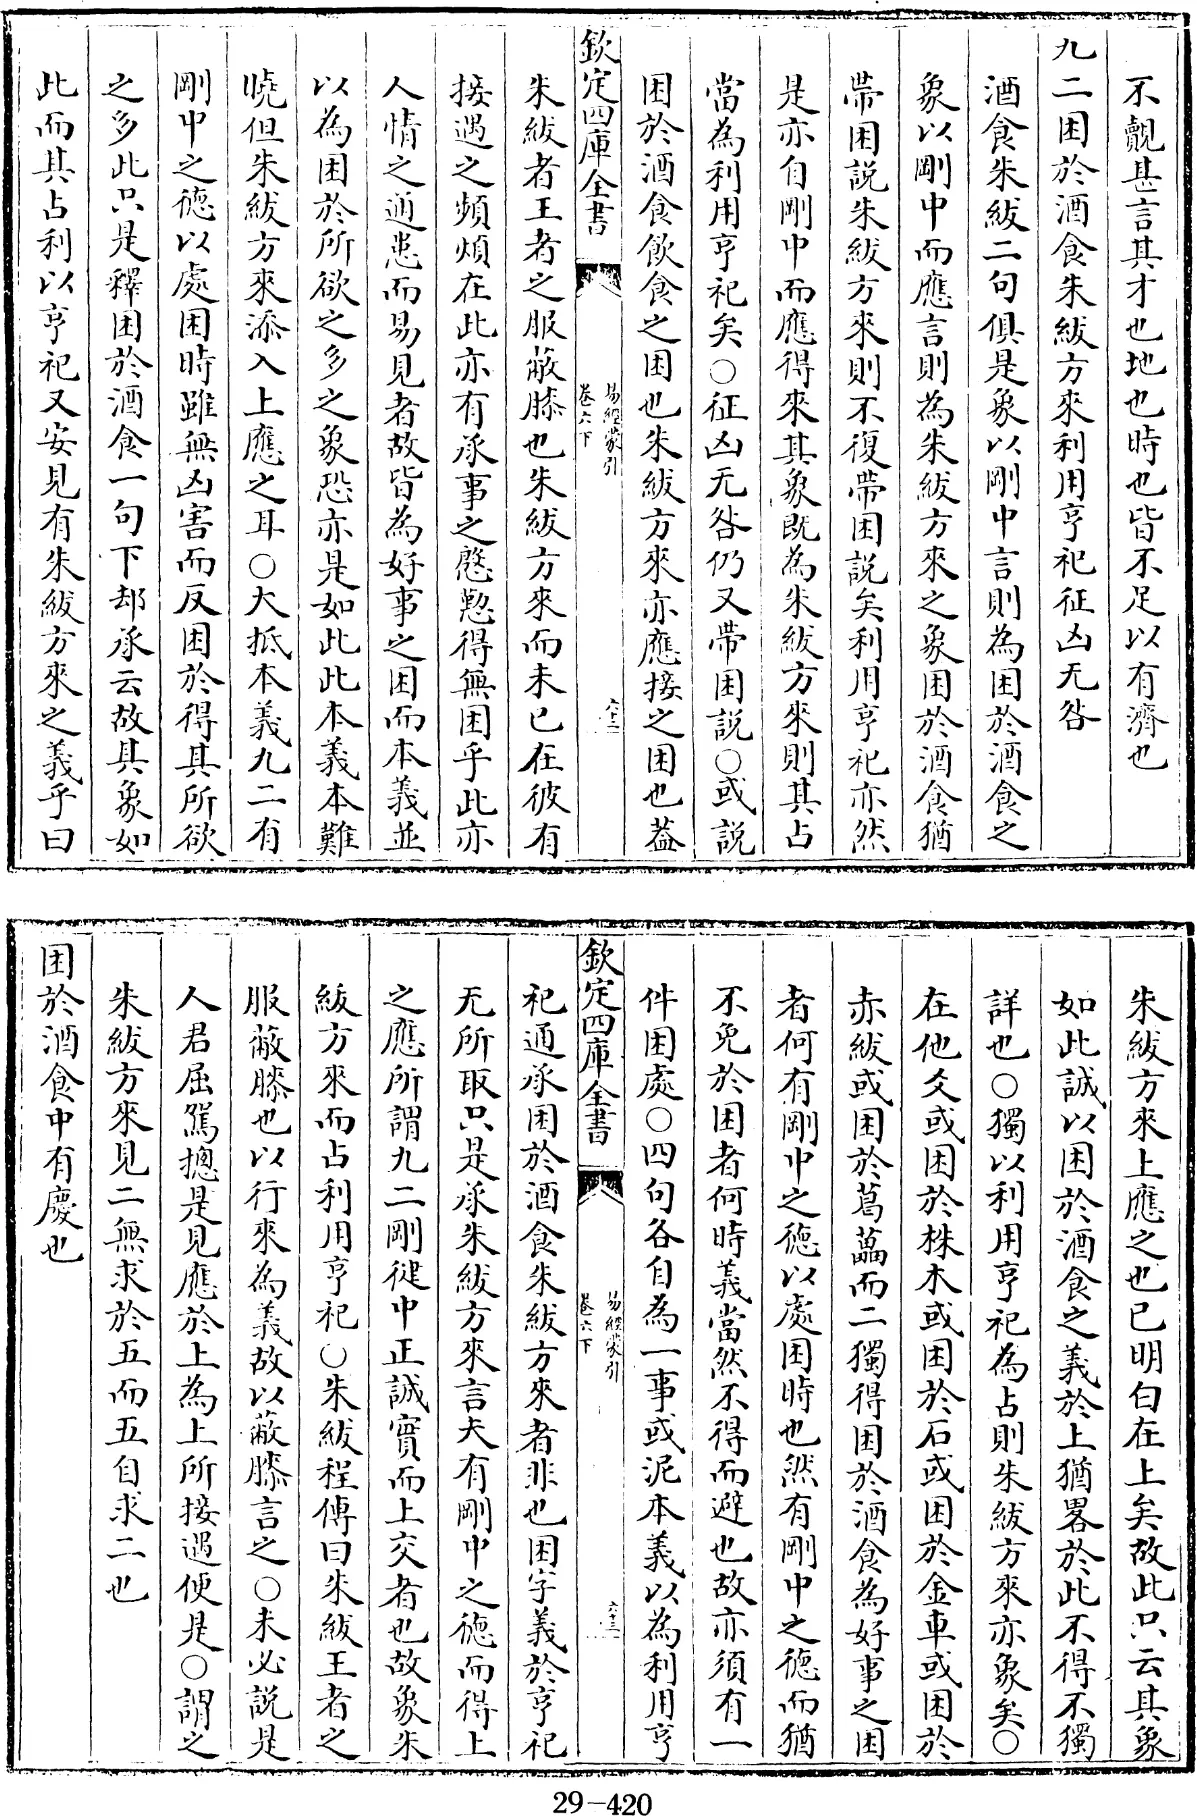 不覿甚言其才也地也時也皆不足以有濟也
九二困於酒食朱紱方來利用亨祀征凶无咎
酒食朱紱二句俱是象以剛中言則為困於酒食之
象以剛中而應言則為朱紱方來之象困於酒食猶
帶困説朱紱方來則不復帶困説矣利用亨祀亦然
是亦自剛中而應得來其象既為朱紱方來則其占
當為利用亨祀矣○征凶无咎仍又帶困説○或説
困於酒食飲食之困也朱紱方來亦應接之困也葢
欽定四庫全書
易經蒙引
卷六下
六十二
朱紱者王者之服蔽膝也朱紱方來而未已在彼有
接遇之頻煩在此亦有承事之慇懃得無困乎此亦
人情之通患而易見者故皆為好事之困而本義並
以為困於所欲之多之象恐亦是如此此本義本難
曉但朱紱方來添入上應之耳○大抵本義九二有
剛中之德以處困時雖無凶害而反困於得其所欲
之多此只是釋困於酒食一句下却承云故其象如
此而其占利以亨祀又安見有朱紱方來之義乎曰
朱紱方來上應之也已明白在上矣故此只云其象
如此誠以困於酒食之義於上猶畧於此不得不獨
詳也○獨以利用亨祀為占則朱紱方來亦象矣○
在他爻或困於株木或困於石或困於金車或困於
赤紱或困於葛藟而二獨得困於酒食為好事之困
者何有剛中之德以處困時也然有剛中之德而猶
不免於困者何時義當然不得而避也故亦須有一
件困處○四句各自為一事或泥本義以為利用亨
欽定四庫全書
易經蒙引
卷六下
六十三
祀通承困於酒食朱紱方來者非也困字義於亨祀
无所取只是承朱紱方來言夫有剛中之德而得上
之應所謂九二剛健中正誠實而上交者也故象朱
紱方來而占利用亨祀○朱紱程傳曰朱紱王者之
服蔽膝也以行來為義故以蔽膝言之○未必説是
人君屈駕揔是見應於上為上所接遇便是○謂之
朱紱方來見二無求於五而五自求二也
困於酒食中有慶也
29-420